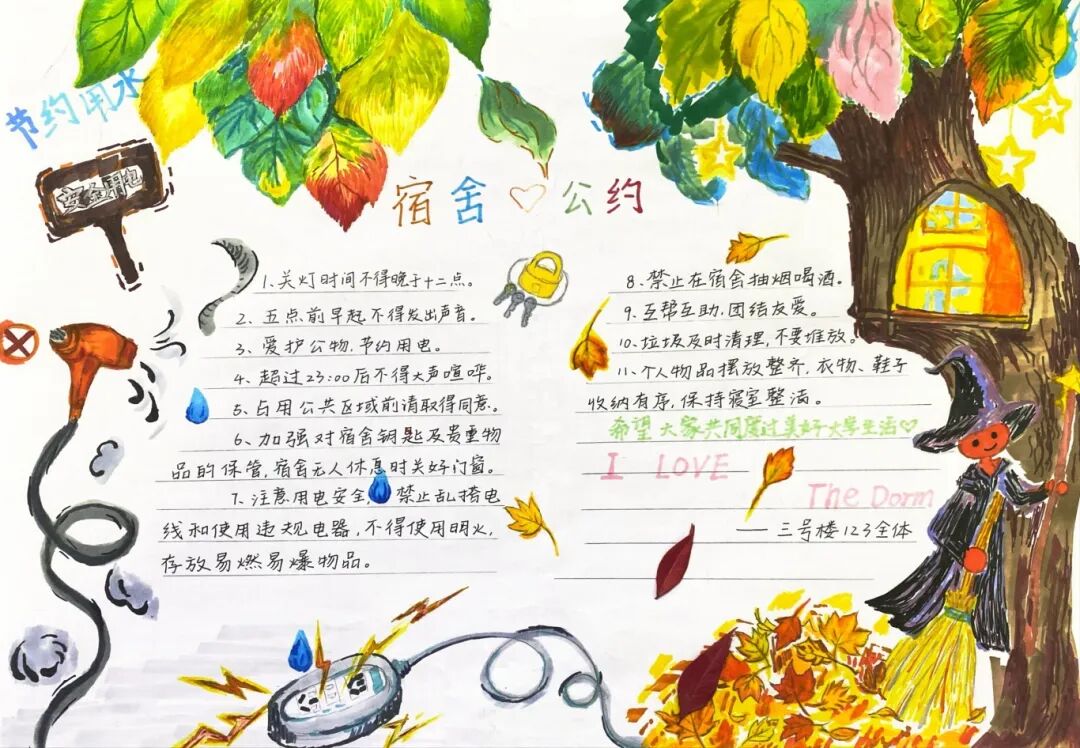 节约用水
安全用电
宿舍♡公约
1.关灯时间不得晚于十二点。
2、五点前早起不得发出声音。
3、爱护公物,节约用电。
4、超过23:00后不得大声喧哗。
5、占用公共区域前请取得同意。
6、加强对宿舍钥匙及贵重物
品的保管,宿舍无人休息时关好门窗。
7、注意用电安全,禁止乱搭电
线和使用违规电器,不得使用明火,
存放易燃易爆物品。
8、禁止在宿舍抽烟喝酒。
9、互帮互助,团结友爱。
10、垃圾及时清理,不要堆放。
11、个人物品摆放整齐,衣物、鞋子
收纳有序,保持寝室整洁。
希望大家共同度过美好大学生活♡
I LOVE
The Dorm
——三号楼123全体